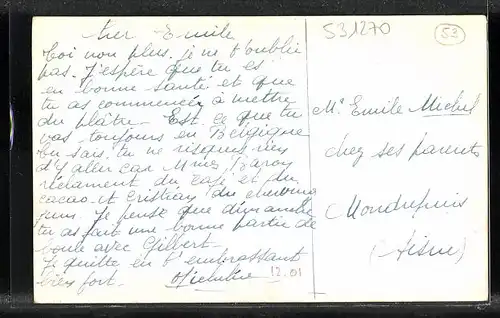 Cher Emile
Toi non plus, je ne t'oublie
pas. J'espère que tu es
en bonne santé et que
tu as commencé à mettre
du plâtre. Est-ce que tu
vas toujours en Belgique
tu sais tu ne risques rien
d'y aller car Mmes Baron
réclament du café et du
cacao et Cristian du
gum. Je pense que dimanche
tu as fait une bonne partie de
boule avec Gilbert.
Je quitte en t'embrassant
bien fort.
12.01
531270
53
Mr Emile Michel
chez ses parents
Mondrepuis
(Aisne)